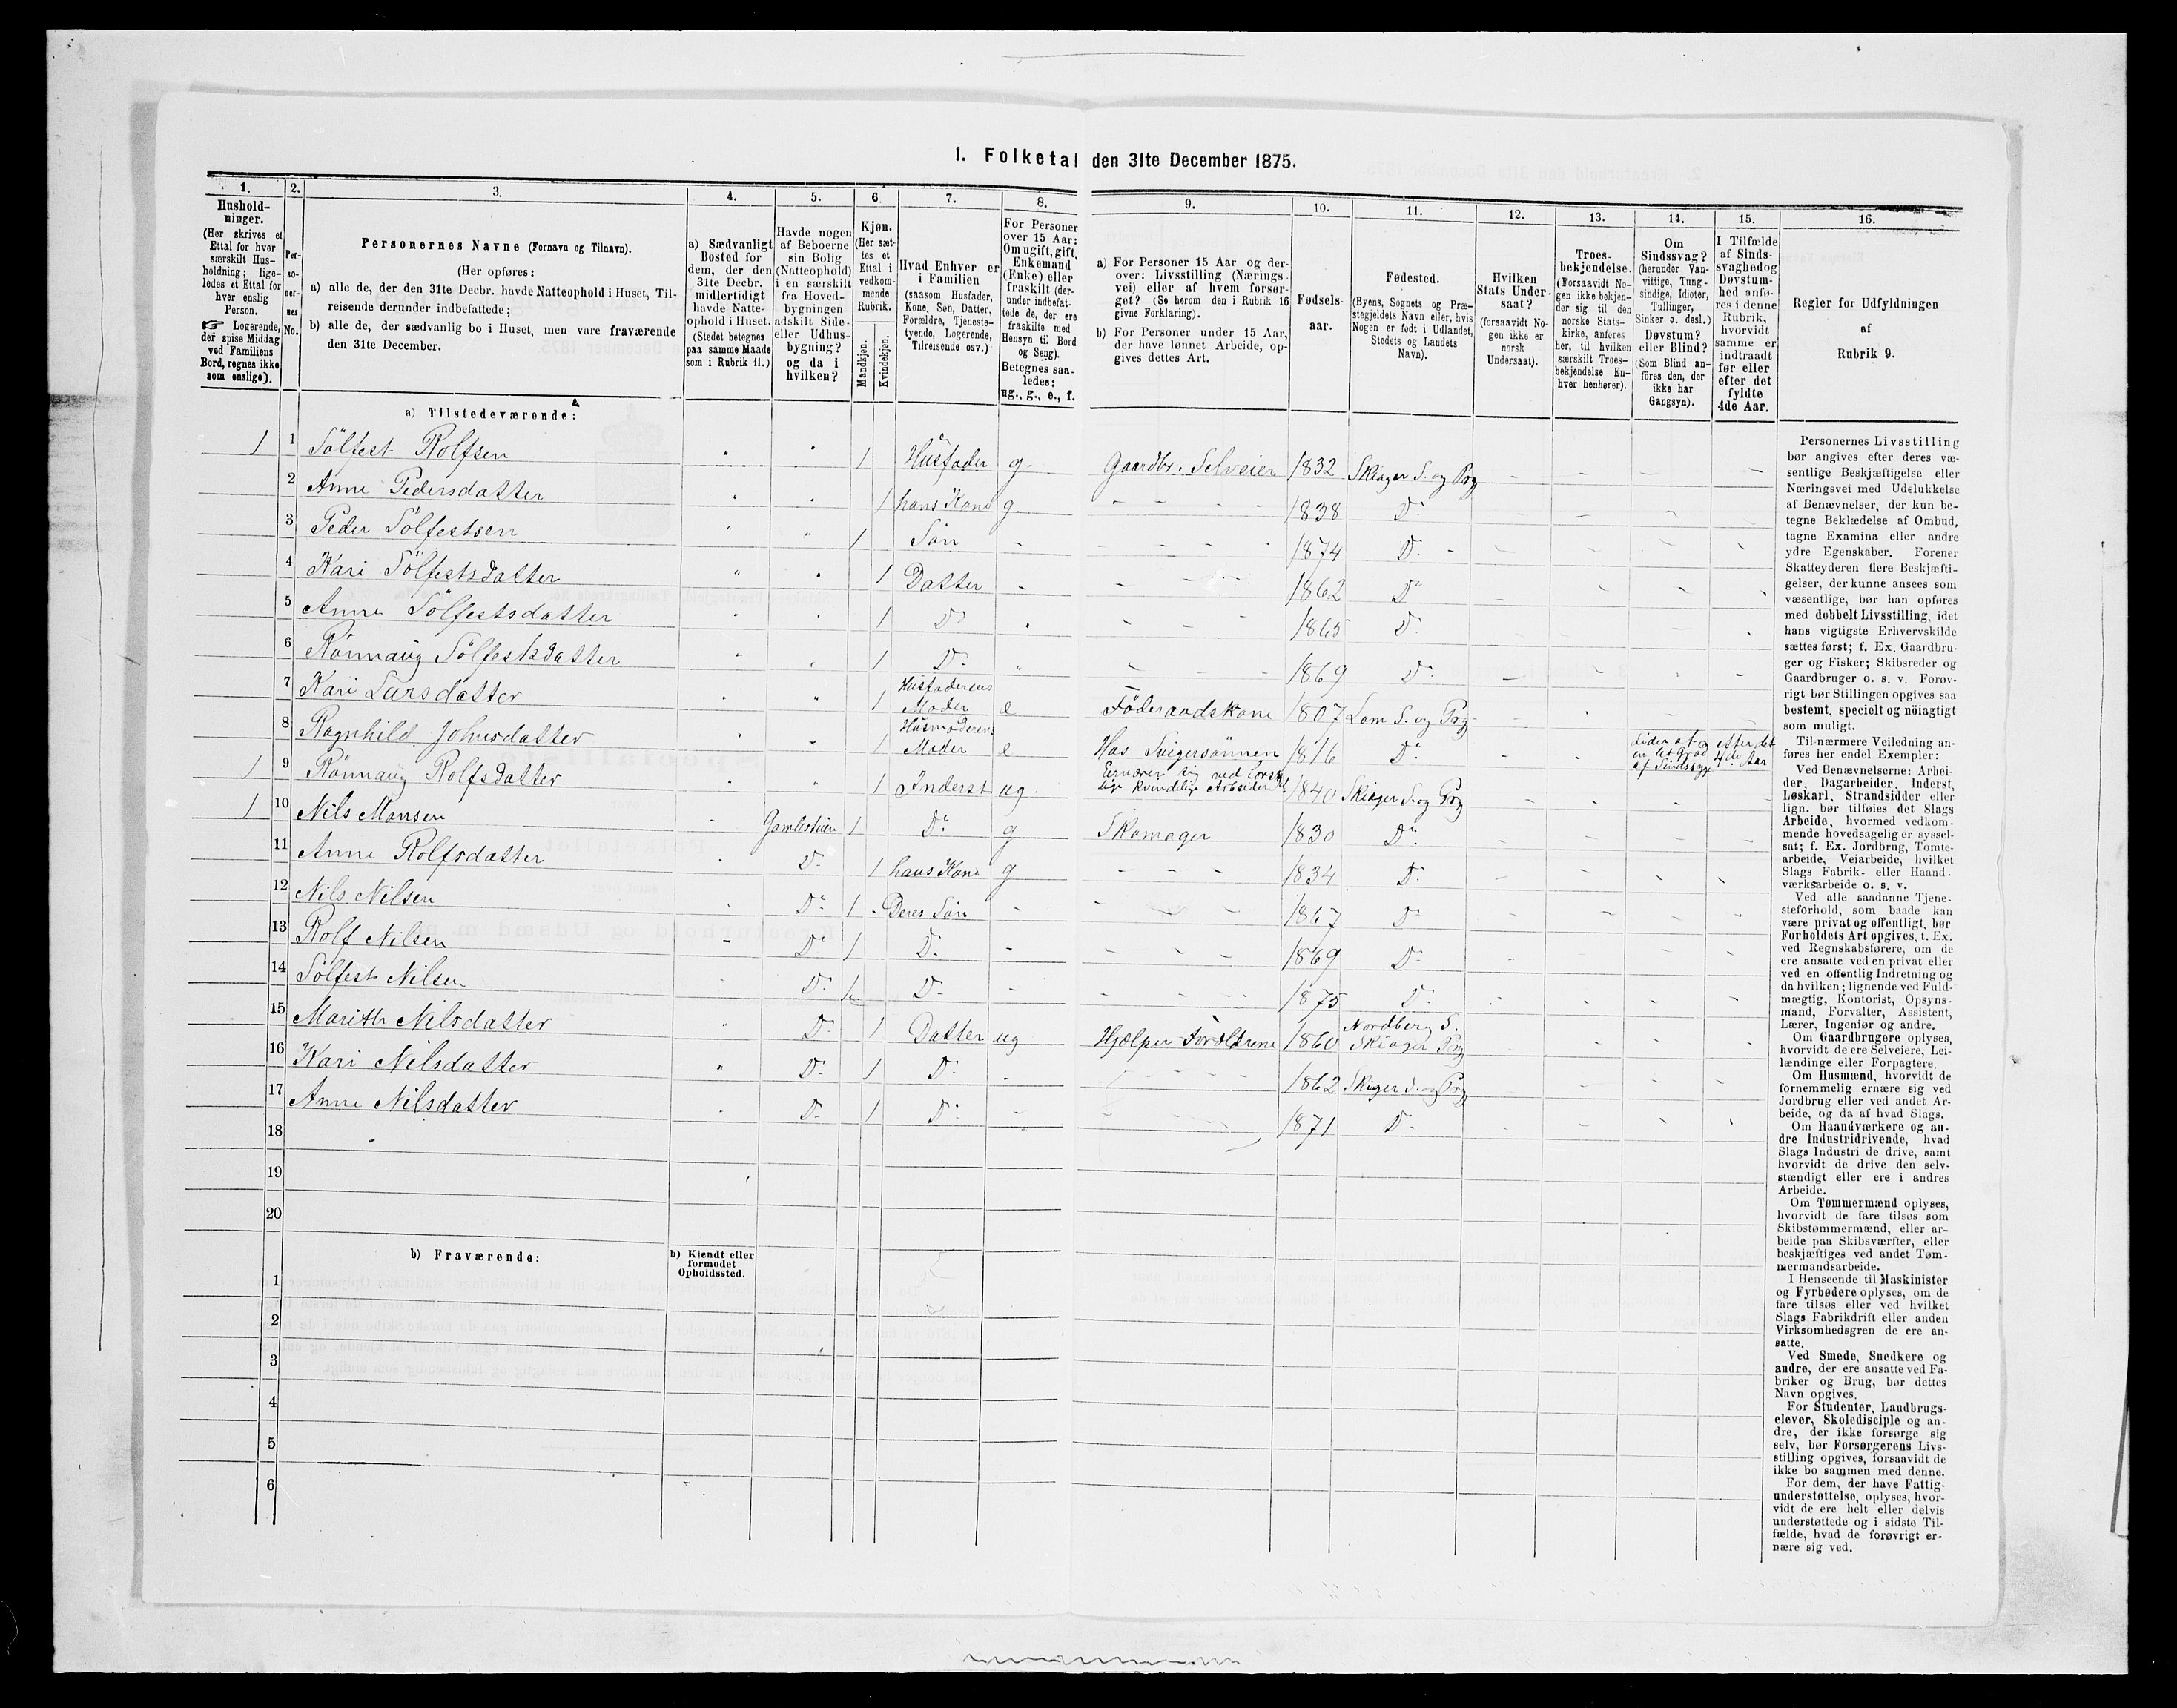 I. Folketal den 31te December 1875.
1. 2. 3. 4. 5. 6. 7. 8. 9. 10. 11. 12. 13. 14. 15. 16.
Hushold-
ninger.
(Her skrives et
Ettal for hver
særskilt Hus-
holdning; lige-
ledes et Ettal for
hver enslig
Person.
☞ Logerende,
der spise Middag
ved Familiens
Bord, regnes ikke
som enslige).
Per-
so-
ner-
nes
No.
Personernes Navne (Fornavn og Tilnavn).
(Her opføres:
a) alle de, der den 31te Decbr. havde Natteophold i Huset, Til-
reisende derunder indbefattede;
b) alle de, der sædvanlig bo i Huset, men vare fraværende
den 31te December.
a) Sædvanligt
Bosted for
dem, der den
31te Decbr.
midlertidigt
havde Natte-
ophold i Huset.
(Stedet betegnes
paa samme Maade
som i Rubrik 11.)
Havde nogen
af Beboerne
sin Bolig
(Natteophold)
i en særskilt
fra Hoved-
bygningen
adskilt Side-
eller Udhus-
bygning?
og da i
hvilken?
Kjøn.
(Her sæt-
tes et
Ettal i
vedkom-
mende
Rubrik.
Mandkjøn.
Kvindekjøn.
Hvad Enhver er
i Familien
(saasom Husfader,
Kone, Søn, Datter,
Forældre, Tjeneste-
tyende, Logerende,
Tilreisende osv.)
For Personer
over 15 Aar:
Om ugift, gift,
Enkemand
(Enke) eller
fraskilt (der-
under indbefat-
tede de, der ere
fraskilte med
Hensyn til Bord
og Seng).
Betegnes saa-
ledes:
ug., g., e., f.
a) For Personer 15 Aar og der-
over: Livsstilling (Nærings-
vei) eller af hvem forsør-
get? (Se herom den i Rubrik 16
givne Forklaring).
b) For Personer under 15 Aar,
der have lønnet Arbeide, op-
gives dettes Art.
Fødsels-
aar.
Fødested.
(Byens, Sognets og Præ-
stegjeldets Navn eller, hvis
Nogen er født i Udlandet,
Stedets og Landets
Navn).
Hvilken
Stats Under-
saat?
(forsaavidt No-
gen ikke er
norsk
Undersaat).
Troes-
bekjendelse.
(Forsaavidt No-
gen ikke bekjen-
der sig til den
norske Stats-
kirke, anføres
her, til hvilken
særskilt Troes-
bekjendelse En-
hver henhører).
Om
Sindssvag?
(herunder Van-
vittige, Tung-
sindige, Idioter,
Tullinger,
Sinker o. desl.)
Døvstum?
eller Blind?
(Som Blind an-
føres den, der
ikke har
Gangsyn).
I Tilfælde
af Sinds-
svaghed og
Døvstum-
hed anfø-
res i denne
Rubrik,
hvorvidt
samme er
indtraadt
før eller
efter det
fyldte
4de Aar.
Regler for Udfyldningen
af
Rubrik 9.
a) Tilstedeværende:
1 1 Sölfest Rolfsen 1 Husfader g. Gaardbr. Selveier 1832 Skiager S. og Prg
2 Anne Pedersdatter 1 hans Kone g 1838 Do
3 Peder Sölfestsen 1 Sön 1874 Do
4 Kari Sölfestsdatter 1 Datter 1862 Do
5 Anne Sölfestsdatter 1 Do 1865 Do
6 Rönnaug Sölfestsdatter 1 Do 1869 Do
7 Kari Larsdatter 1 Husfaderens Moder e Föderaadskone 1807 Lom S. og Prg
8 Ragnhild Johnsdatter 1 Husmoderens Moder e Hos Svigersönnen 1816 Do Lider af en let Grad af Sindssyge efter det 4de Aar
1 9 Rönnaug Rolfsdatter 1 Inderst ug. Ernærer sig ved forskjellige kvindelige Arbeider 1840 Skiager S. og Prg
1 10 Nils Monsen Gamlestuen 1 Do g Skomager 1830 Do
11 Anne Rolfsdatter Do 1 hans Kone g 1834 Do
12 Nils Nilsen Do 1 Deres Sön 1867 Do
13 Rolf Nilsen Do 1 Do 1869 Do
14 Sölfest Nilsen Do 1 Do 1875 Do
15 Marith Nilsdatter Do 1 Datter ug Hjælper Forældrene 1860 Nordberg S. Skiager Prg
16 Kari Nilsdatter Do 1 Do 1862 Skiager S. og Prg
17 Anne Nilsdatter Do 1 Do 1871 Do
18
19
20
b) Fraværende:
b) Kjendt eller
formodet
Opholdssted.
1
2
3
4
5
6
Personernes Livsstilling
bør angives efter deres væ-
sentlige Beskjæftigelse eller
Næringsvei med Udelukkelse
af Benævnelser, der kun be-
tegne Beklædelse af Ombud,
tagne Examina eller andre
ydre Egenskaber. Forener
Skatteyderen flere Beskjæfti-
gelser, der kunne ansees som
væsentlige, bør han opføres
med dobbelt Livsstilling, idet
hans vigtigste Erhvervskilde
sættes først; f. Ex. Gaardbru-
ger og Fisker; Skibsreder og
Gaardbruger o. s. v. Forøv-
rigt bør Stillingen opgives saa
bestemt, specielt og nöiagtigt
som muligt.
Til nærmere Veiledning an-
føres her endel Exempler:
Ved Benævnelserne: Arbei-
der, Dagarbeider, Inderst,
Løskarl, Strandsidder eller
lign. bør tilføies det Slags
Arbeide, hvormed vedkom-
mende hovedsagelig er syssel-
sat; f. Ex. Jordbrug, Tomte-
arbeide, Veiarbeide, hvilket
Slags Fabrik- eller Haand-
værksarbeide o. s. v.
Ved alle saadanne Tjene-
steforhold, som baade kan
være privat og offentligt, bør
Forholdets Art opgives, t. Ex.
ved Regnskabsførere, om de
ere ansatte ved en privat eller
ved en offentlig Indretning og
da hvilken; lignende ved Fuld-
mægtig, Kontorist, Opsyns-
mand, Forvalter, Assistent,
Lærer, Ingeniør og andre.
Om Gaardbrugere oplyses,
hvorvidt de ere Selveiere, Lei-
lændinge eller Forpagtere.
Om Husmænd, hvorvidt de
fornemmelig ernære sig ved
Jordbrug eller ved andet Ar-
beide, og da af hvad Slags.
Om Haandværkere og an-
dre Industridrivende, hvad
Slags Industri de drive, samt
hvorvidt de drive den selv-
stændigt eller ere i andres
Arbeide.
Om Tømmermænd oplyses,
hvorvidt de fare tilsøs som
Skibstømmermænd, eller ar-
beide paa Skibsværfter, eller
beskjæftiges ved andet Tøm-
mermandsarbeide.
I Henseende til Maskinister
og Fyrbødere oplyses, om de
fare tilsøs eller ved hvilket
Slags Fabrikdrift eller anden
Virksomhedsgren de ere an-
satte.
Ved Smede, Snedkere og
andre, der ere ansatte ved Fa-
briker og Brug, bør dettes
Navn opgives.
For Studenter, Landbrugs-
elever, Skoledisciple og an-
dre, der ikke forsørge sig
selv, bør Forsørgerens Livs-
stilling opgives, forsaavidt de
ikke bo sammen med denne.
For dem, der have Fattig-
understøttelse, oplyses, hvor-
vidt de ere helt eller delvis
understøttede og i sidste Til-
fælde, hvad de forøvrigt er-
nære sig ved.